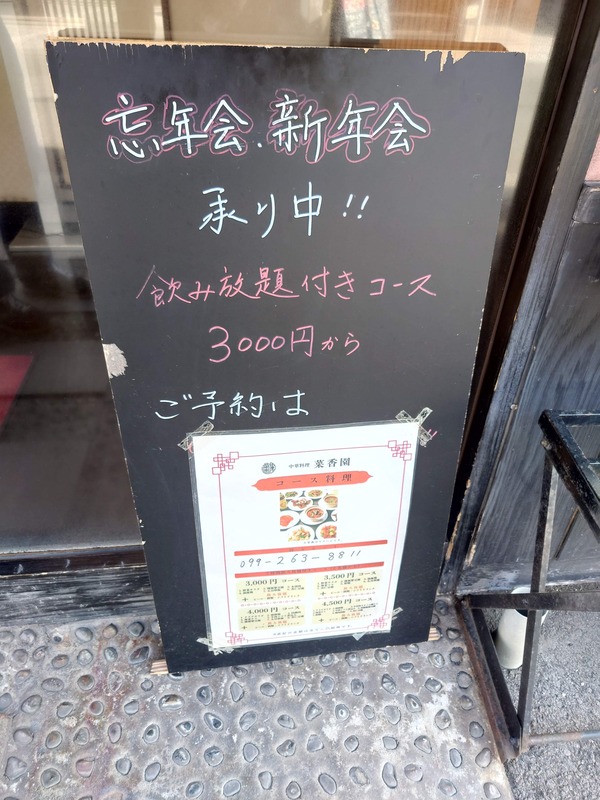 忘年会.新年会
承り中!!
飲み放題付きコース
3000円から
ご予約は
中華料理 菜香園
コース料理
099-263-8811
3,000円 コース
3,500円 コース
4,000円 コース
4,500円 コース